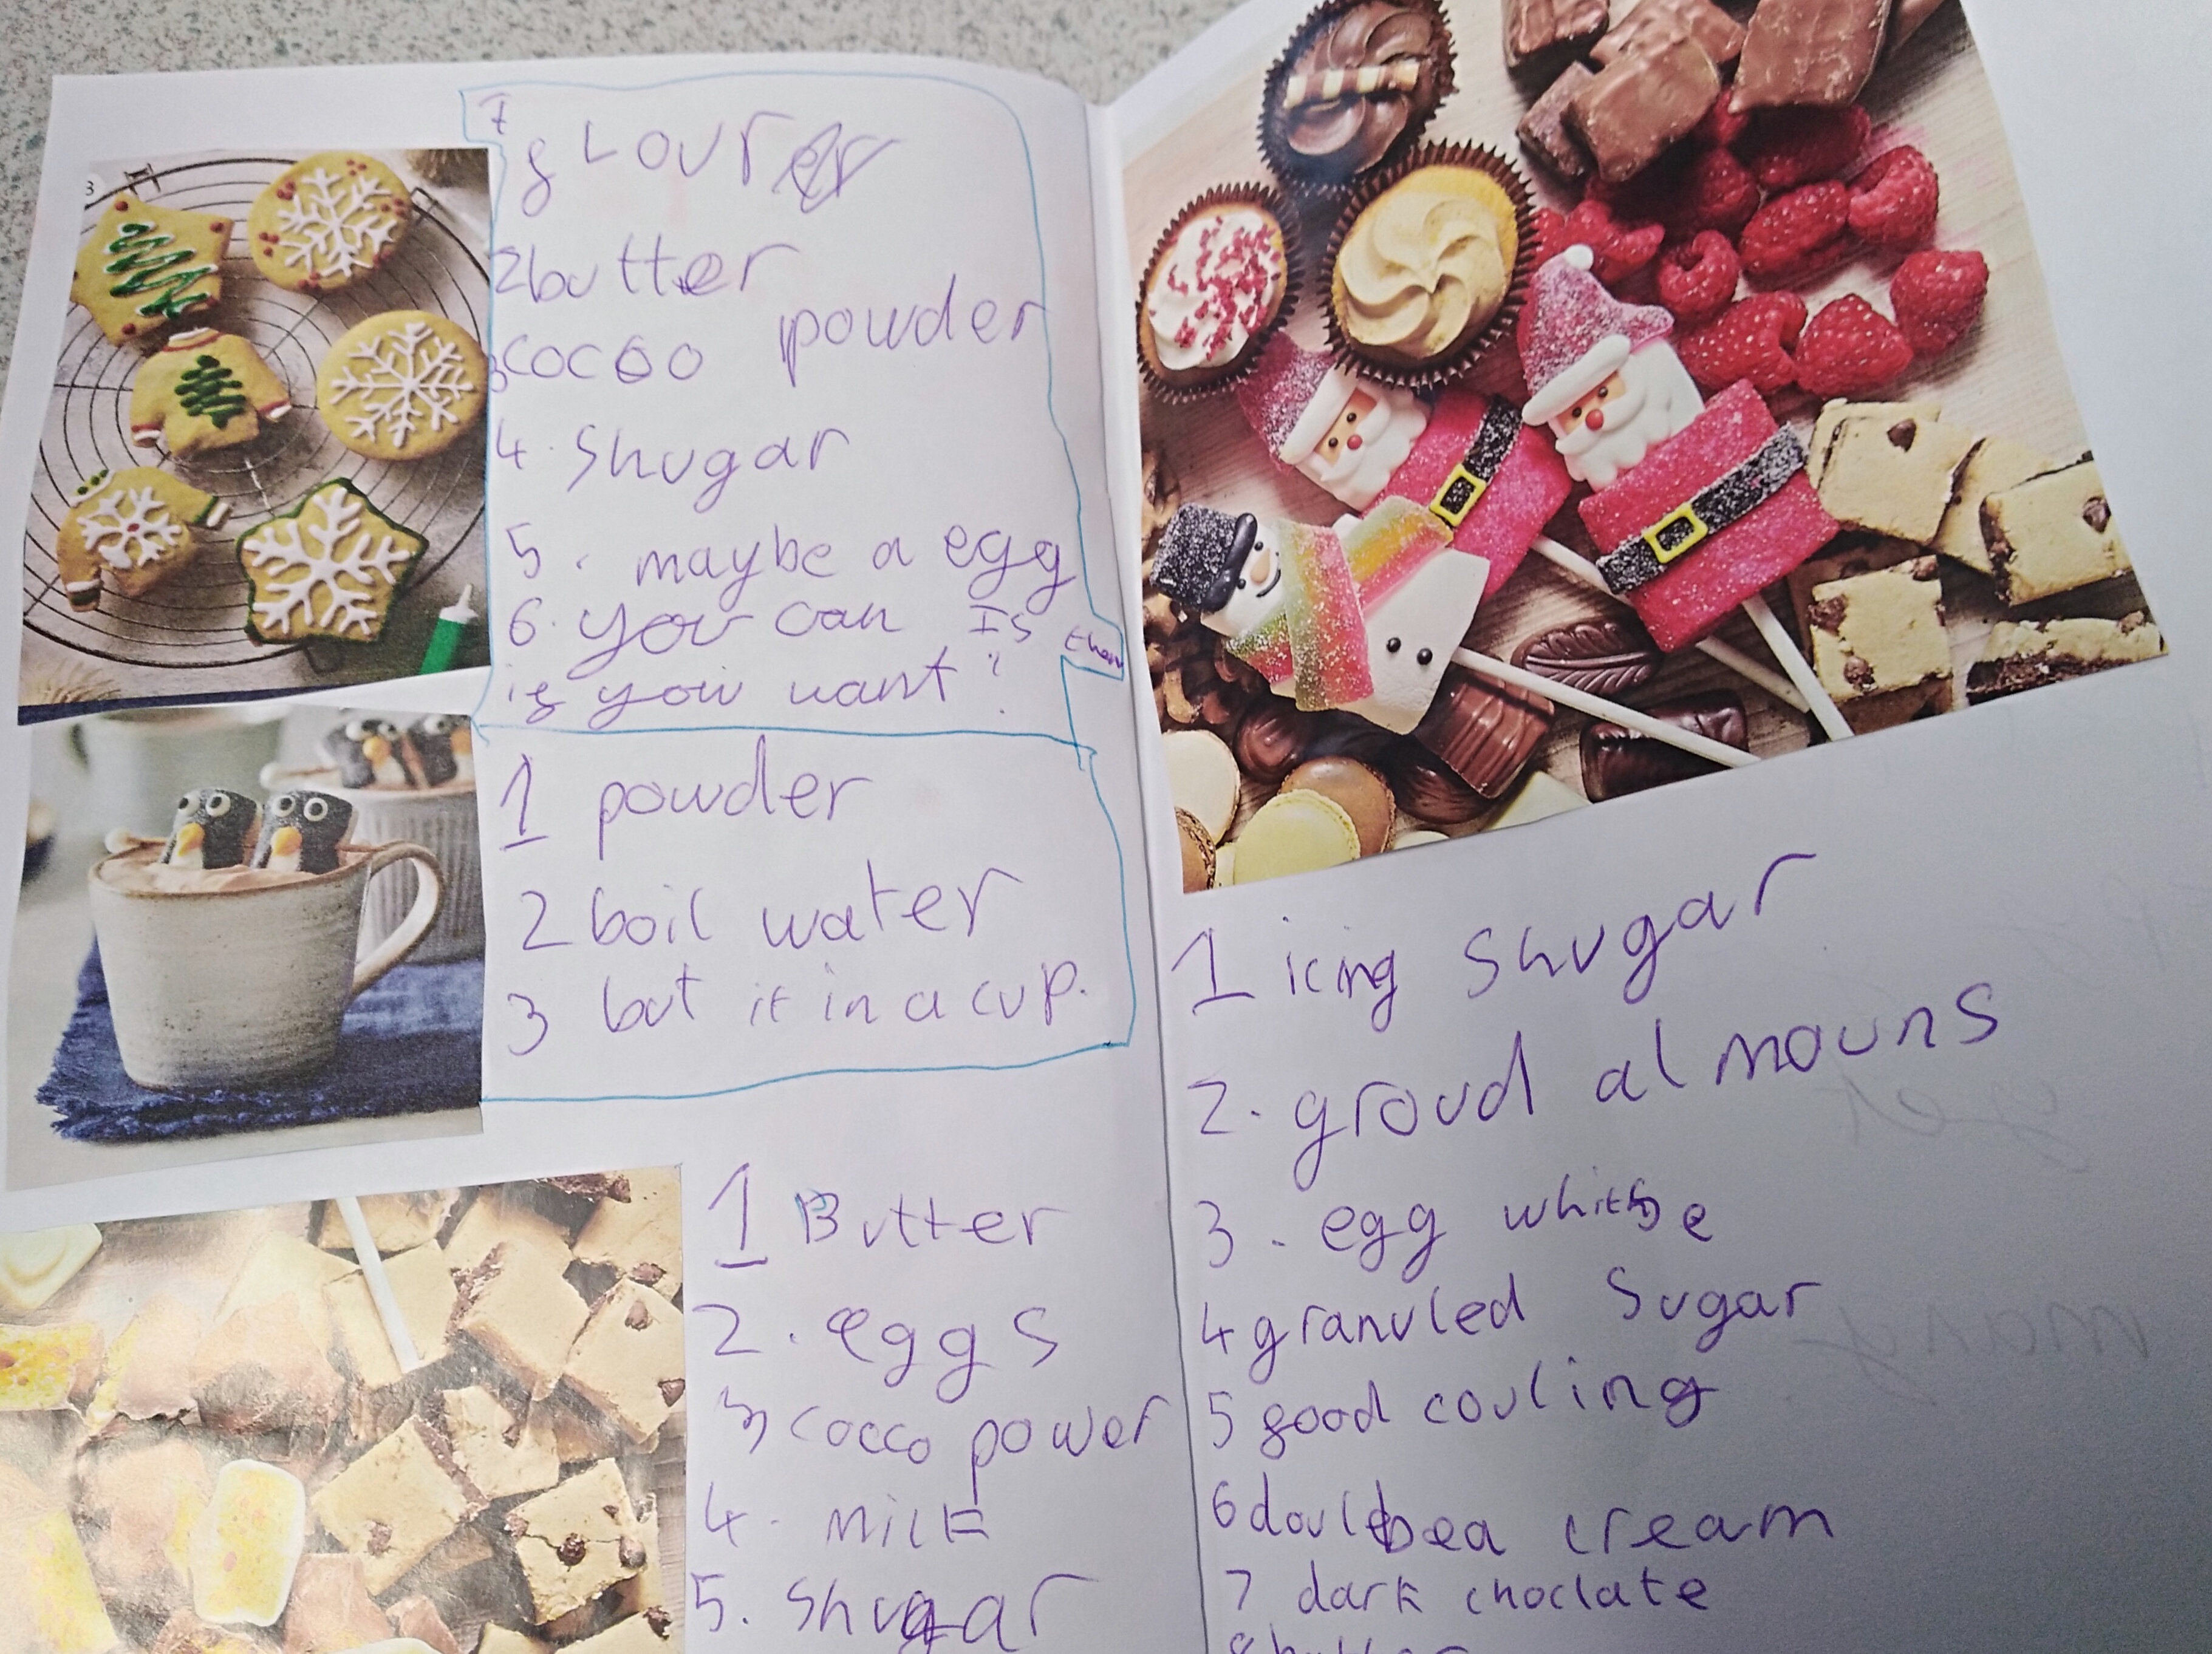 1 flour
2 butter
3 cocoo powder
4. Shugar
5. maybe a egg
6. you can Is them
if you want!
1 powder
2 boil water
3 but it in a cup.
1 Butter
2. eggs
3 cocco power
4. milk
5. Shugar
1 icing Shugar
2. groud almouns
3. egg white
4 granuled Sugar
5 good couling
6 doulbea cream
7 dark choclate
8 butter